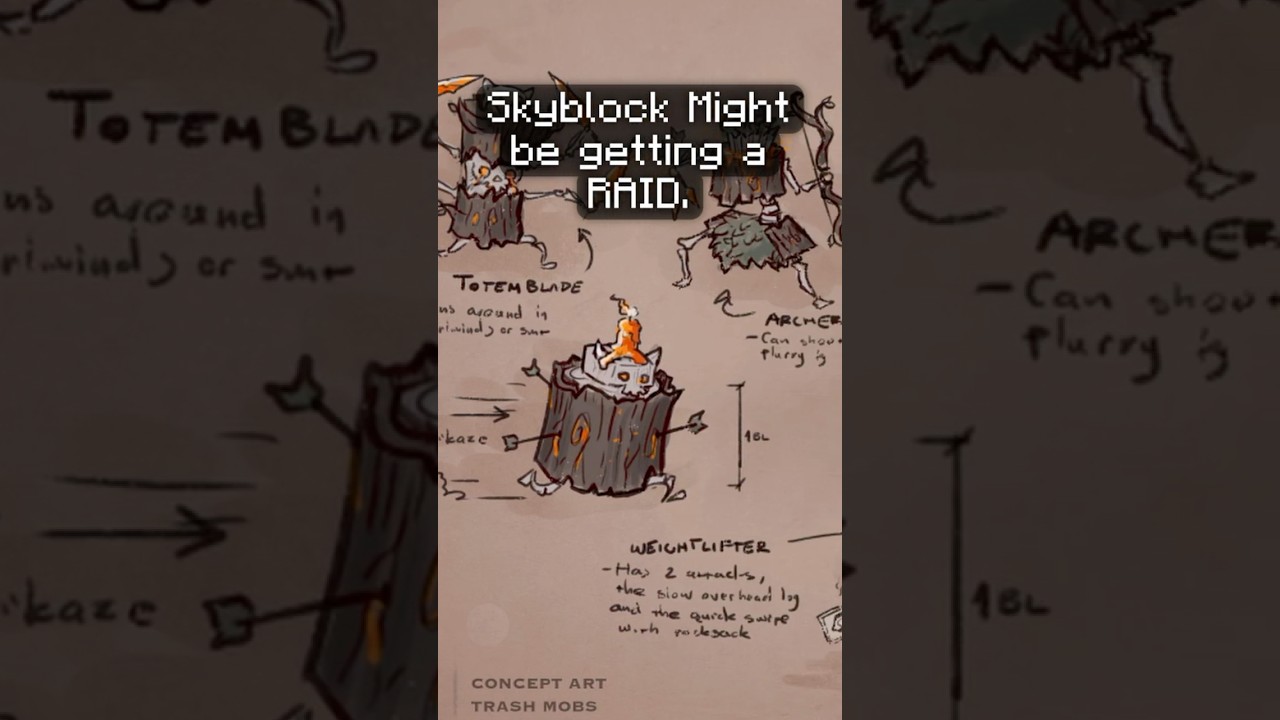 Skyblock Might
be getting a
RAID.
TOTEMBLADE
ns around in
ARCHER
-Can shoo
plurry is
kaze
1BL
WEIGHTLIFTER
-Has 2 attacks,
the slow overhead log
and the quick swipe
with rocksack
CONCEPT ART
TRASH MOBS